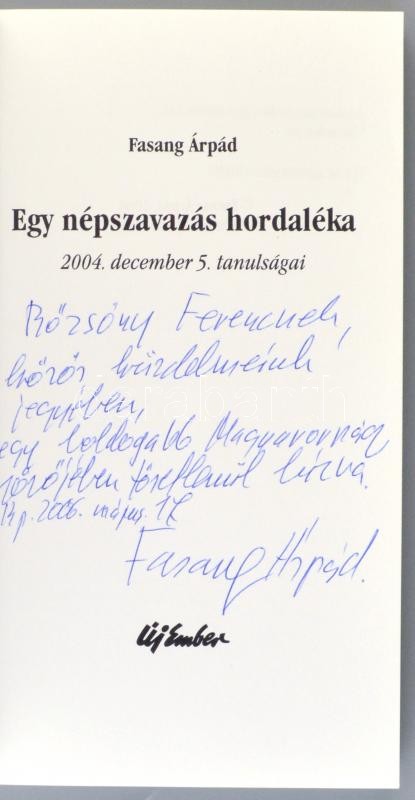 Fasang Árpád
Egy népszavazás hordaléka
2004. december 5. tanulságai
Bőzsöny Ferencnek,
közös küzdelmeink
jegyében,
egy boldogabb Magyarország
jövőjében töretlenül bízva.
2006. május 17.
Fasang Árpád.
Új Ember